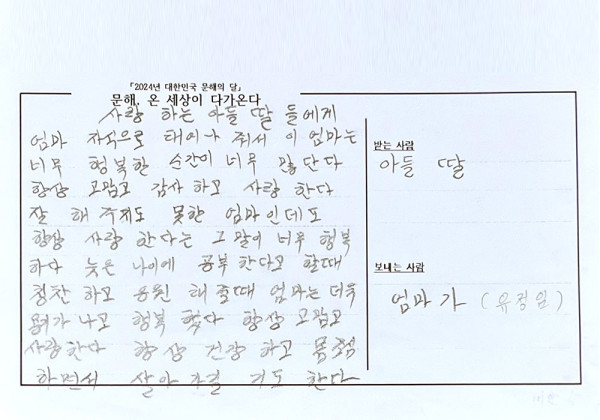 『2024년 대한민국 문해의 달』
문해, 온 세상이 다가온다
사랑 하는 아들 딸 들에게
엄마 자식으로 태어나 줘서 이 엄마는
너무 행복한 순간이 너무 많단다
항상 고맙고 감사 하고 사랑 한다
잘 해 주지도 못한 엄마인데도
항상 사랑 한다는 그 말이 너무 행복
하다 늦은 나이에 공부 한다고 할때
칭찬 하고 응원 해 줄때 엄마는 더욱
힘이 나고 행복 했다 항상 고맙고
사랑한다 항상 건강 하고 몸조심
하면서 살아 주길 기도 한다
받는 사람
아들 딸
보내는 사람
엄마가 (유정임)